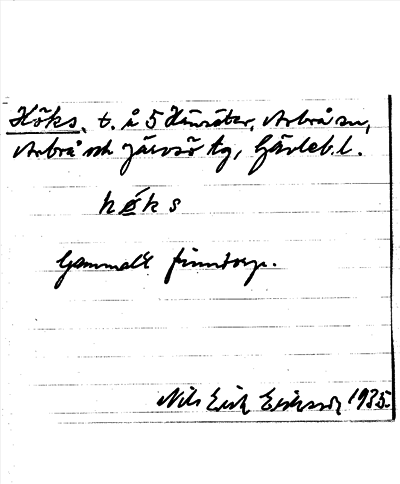 Höks, t. å 5 Hänsätter, Arbrå sn,
Arbrå och Järvsö tg, Gävleb. l.
hö́ks
Gammalt finntorp.
Nils Erik Eriksson 1935.